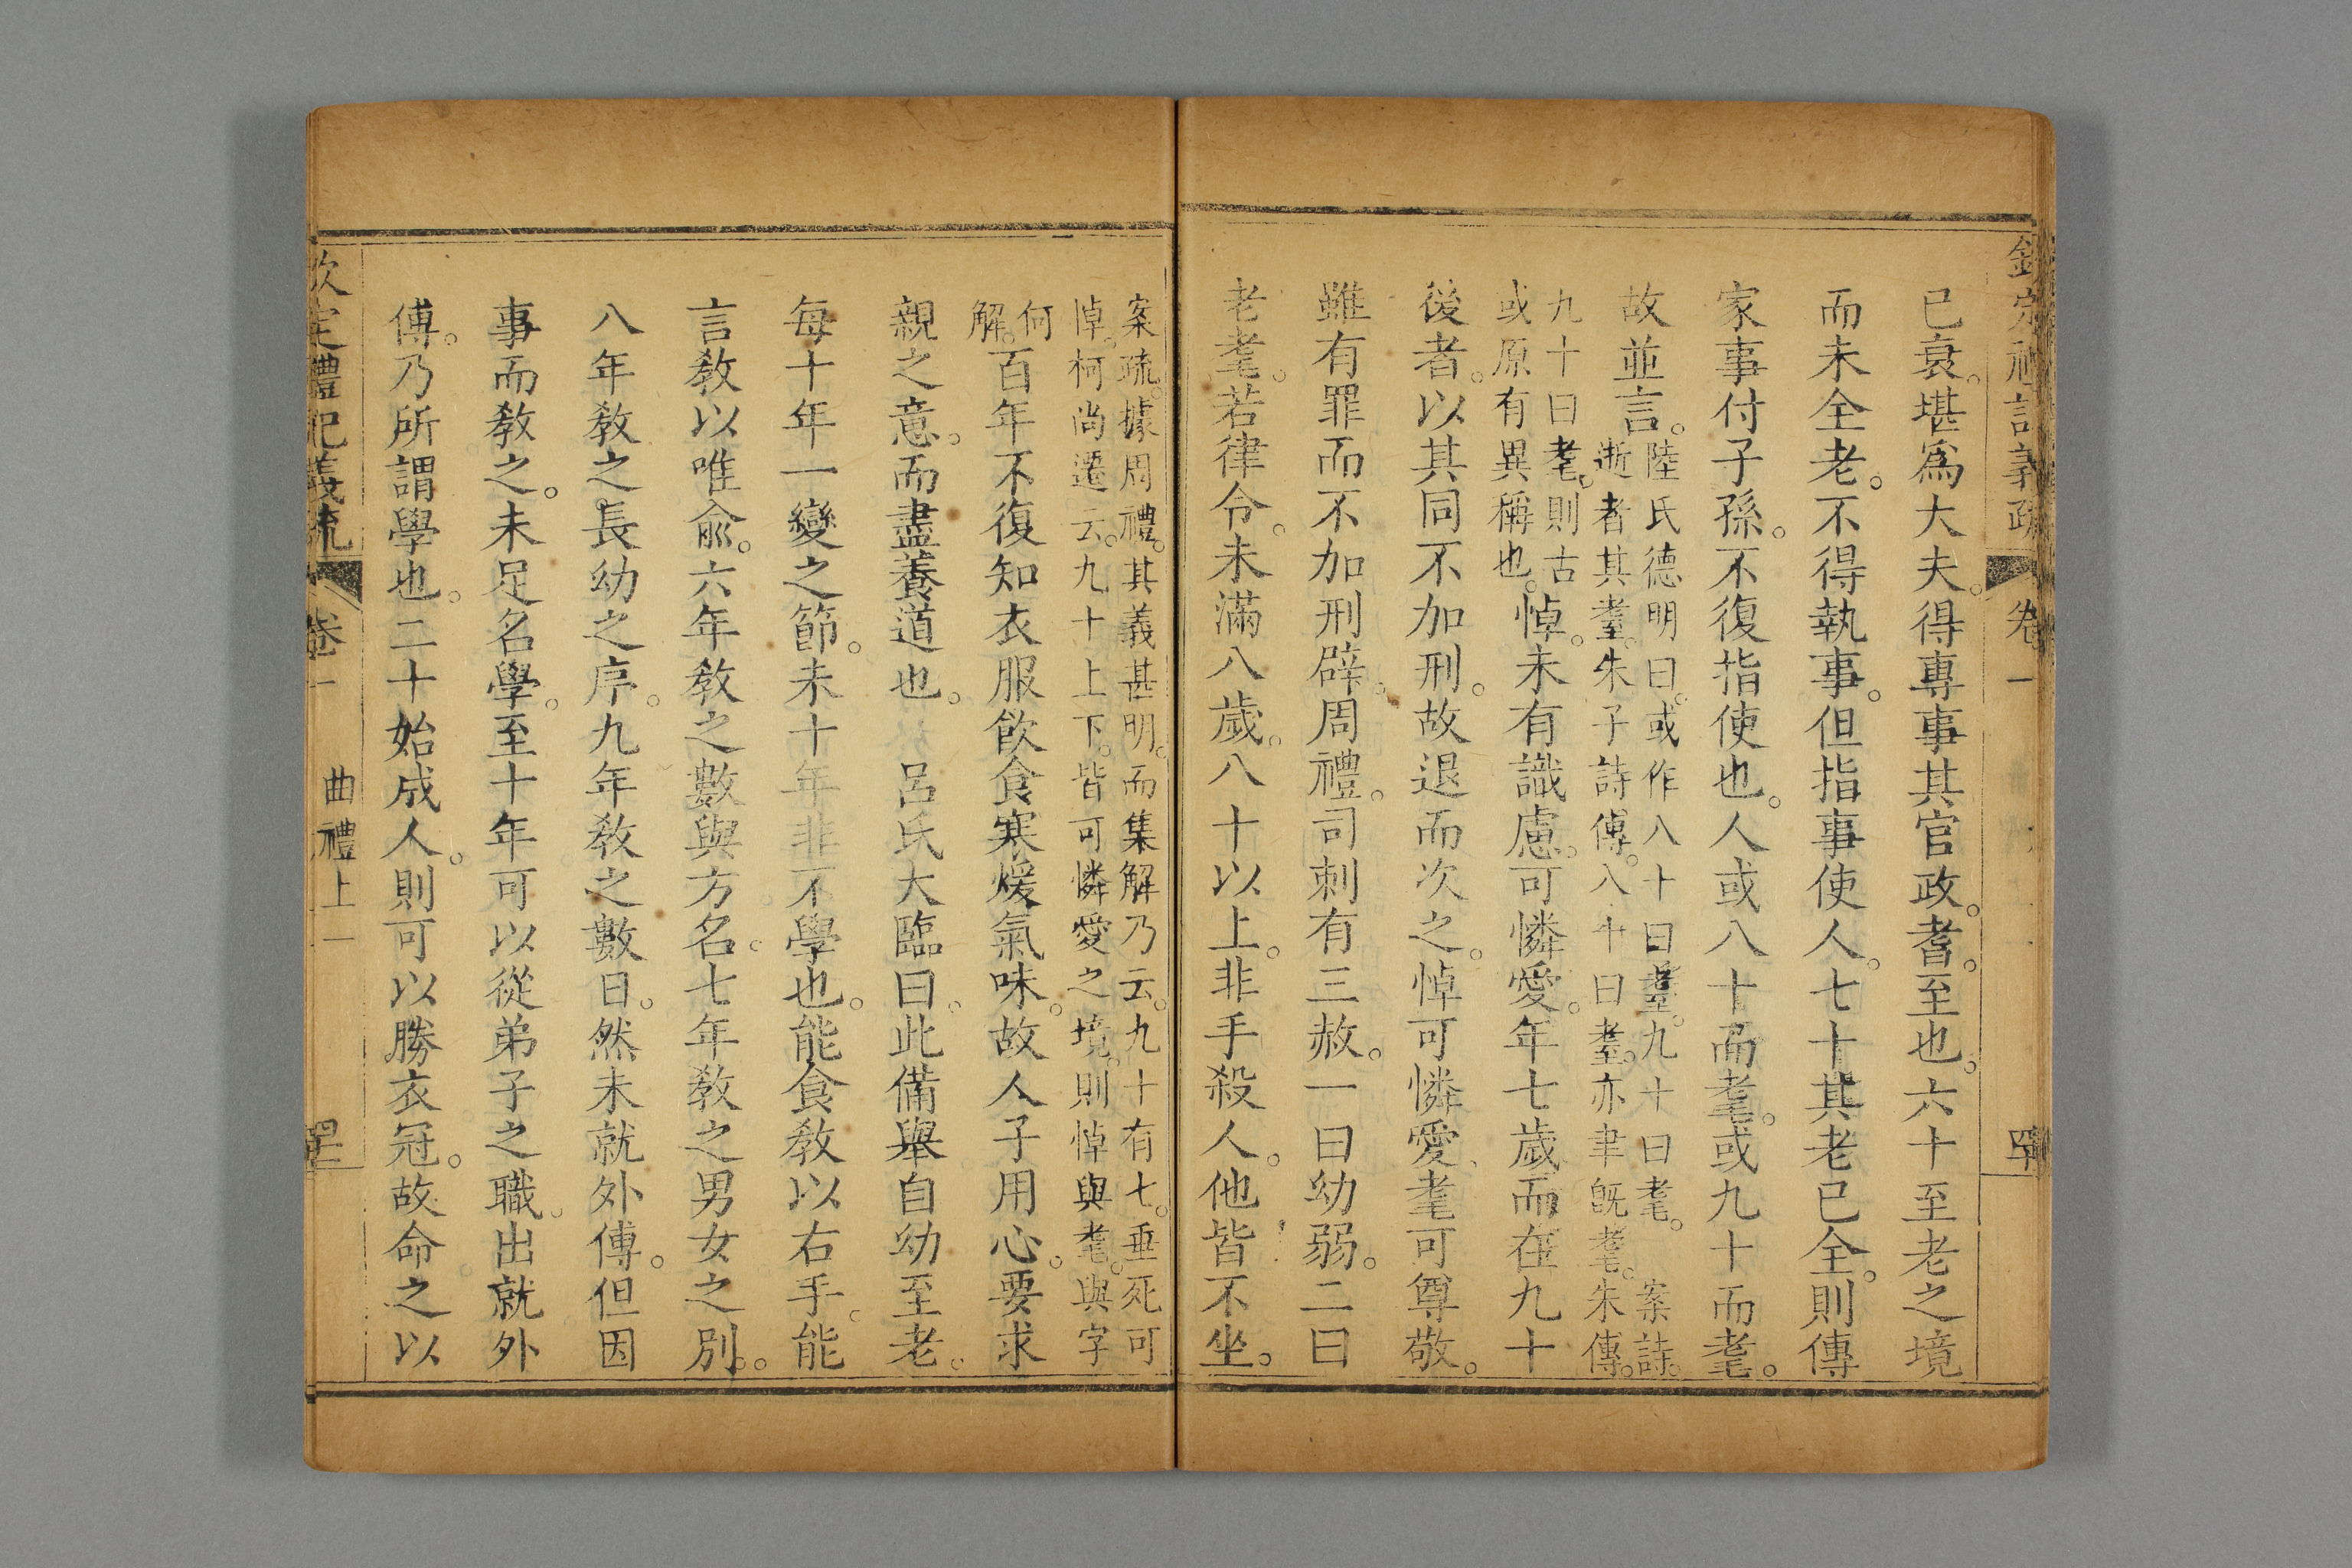 已衰。堪爲大夫。得專事其官政。耆。至也。六十至老之境
而未全老。不得執事。但指事使人。七十其老已全。則傳
家事付子孫。不復指使也。人或八十而耄。或九十而耄。
故並言。
陸氏德明曰。或作八十曰耋。九十曰耄。　案詩。
逝者其耋。朱子詩傳。八十曰耋。亦聿旣耄。朱傳。
九十曰耄。則古
或原有異稱也。
悼。未有識慮。可憐愛。年七歲而在九十
後者。以其同不加刑。故退而次之。悼可憐愛、耄可尊敬。
雖有罪而不加刑辟。周禮。司刺有三赦。一曰幼弱。二曰
老耄。若律令。未滿八歲。八十以上。非手殺人。他皆不坐。
案疏。據周禮。其義甚明。而集解乃云。九十有七。垂死可
悼。柯尚遷云。九十上下。皆可憐愛之境。則悼與耄。與字
何
解。
百年不復知衣服飲食寒煖氣味。故人子用心。要求
親之意。而盡養道也。　呂氏大臨曰。此備舉自幼至老。
每十年一變之節。未十年非不學也。能食教以右手。能
言教以唯兪。六年教之數與方名。七年教之男女之別。。
八年教之長幼之序。九年教之數日。然未就外傅。但因
事而教之。未足名學。至十年可以從弟子之職。出就外
傅。乃所謂學也。二十始成人。則可以勝衣冠。故命之以
欽定禮記義疏　卷一　曲禮上一